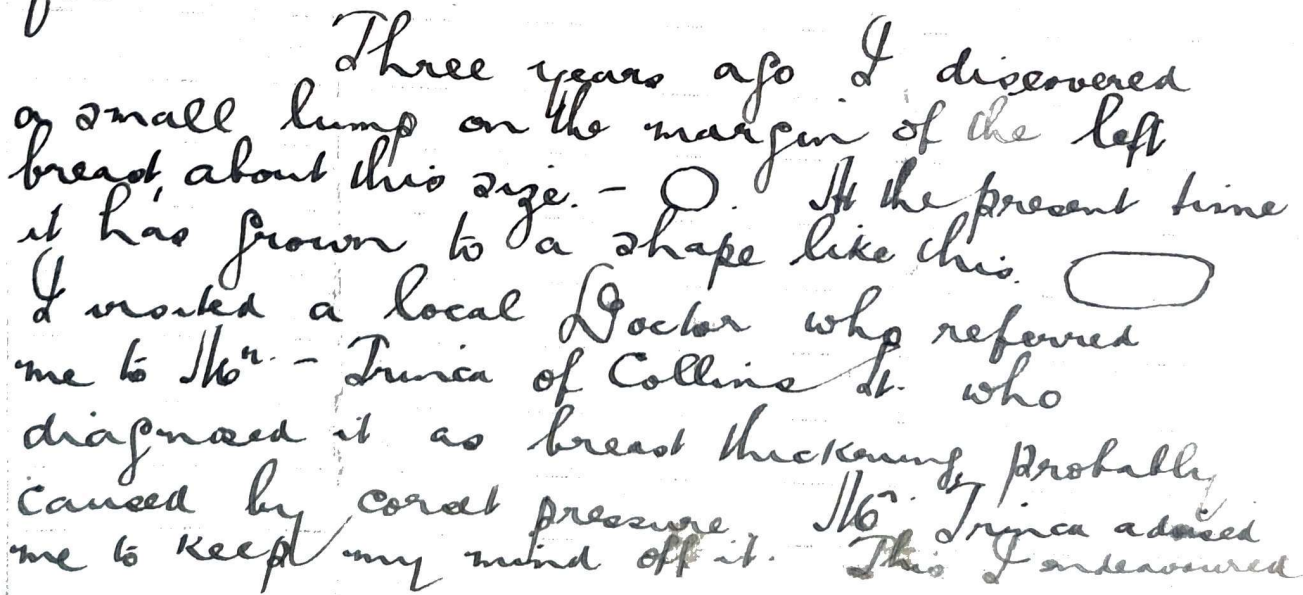 Three years ago I discovered
a small lump on the margin of the left
breast, about this size. - O. At the present time
it has grown to a shape like this.
I visited a local Doctor who referred
me to Mr. - Trinca of Collins St. who
diagnosed it as breast thickening, probably
caused by corset pressure. Mr. Trinca advised
me to keep my mind off it. This I endeavoured